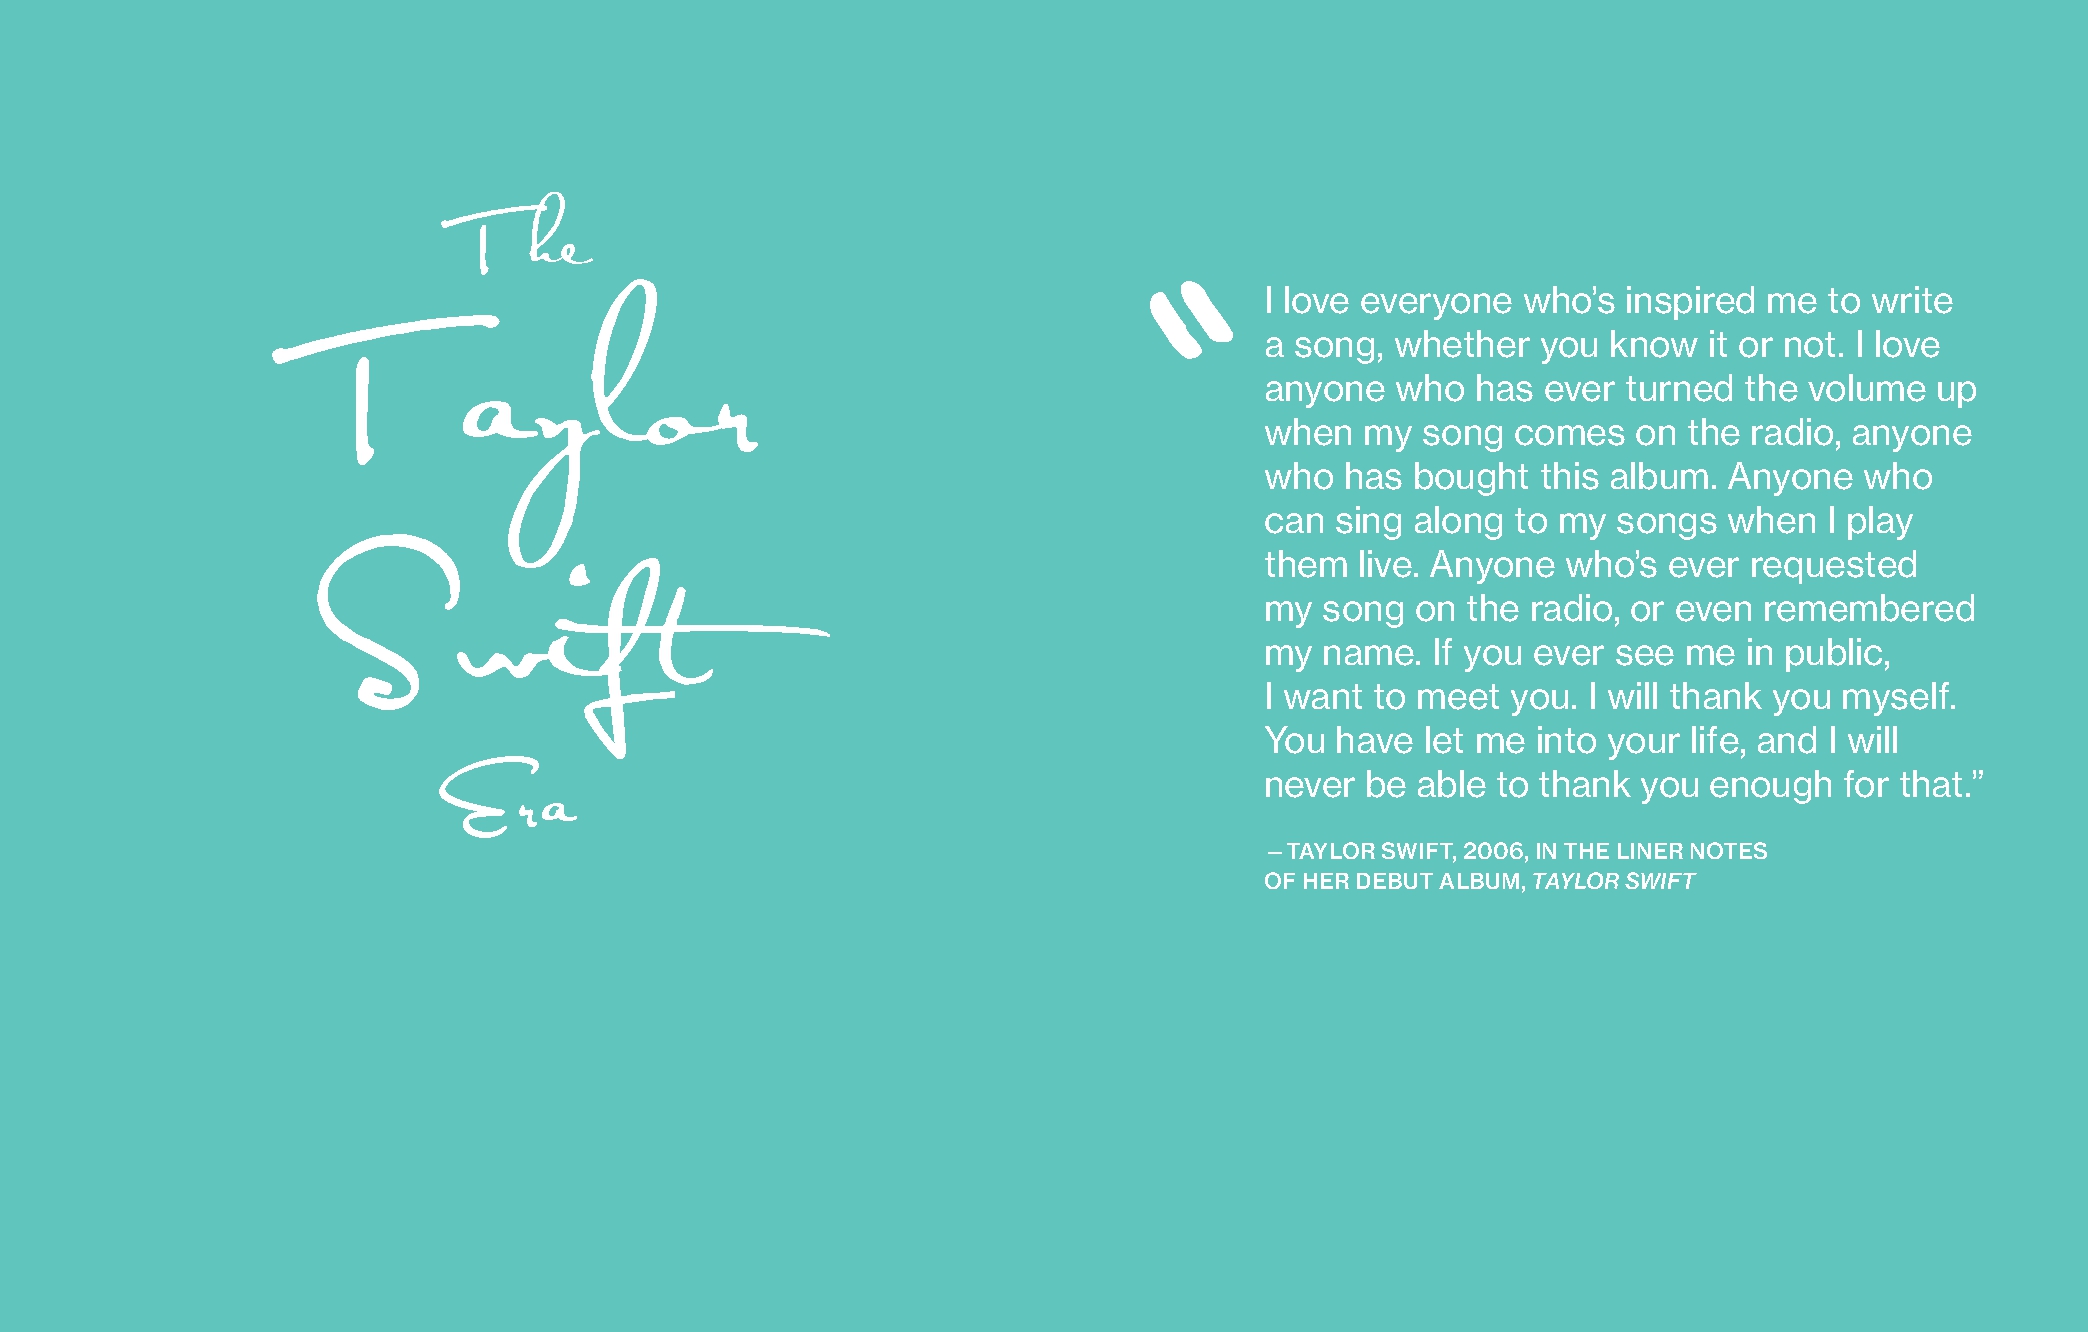 The
Taylor
Swift
Era
"I love everyone who’s inspired me to write
a song, whether you know it or not. I love
anyone who has ever turned the volume up
when my song comes on the radio, anyone
who has bought this album. Anyone who
can sing along to my songs when I play
them live. Anyone who’s ever requested
my song on the radio, or even remembered
my name. If you ever see me in public,
I want to meet you. I will thank you myself.
You have let me into your life, and I will
never be able to thank you enough for that.”
—TAYLOR SWIFT, 2006, IN THE LINER NOTES
OF HER DEBUT ALBUM, TAYLOR SWIFT